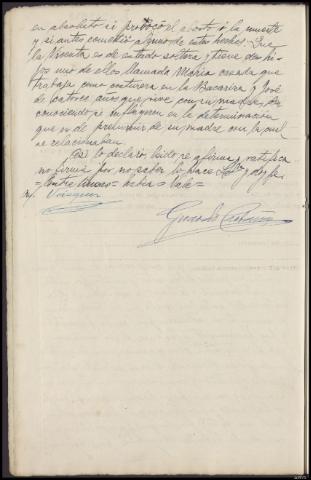 en absoluto si provocó el aborto ó la muerte
y si antes cometió alguno de estos hechos = Que
la Vicenta es de estado soltera y tiene dos hi-
jos uno de ellos llamada María creada que
trabaja como costurera en la y José
de catorce años que vive con su madre, des-
conociendo si influyeron en la determinación
que es de presumir de su madre con la cual
se relacionaban.
Así lo declaró leido se afirma y ratifica
no firma por no saber lo hace S.Sª y doy fe
= Entre lineas = = Vale =